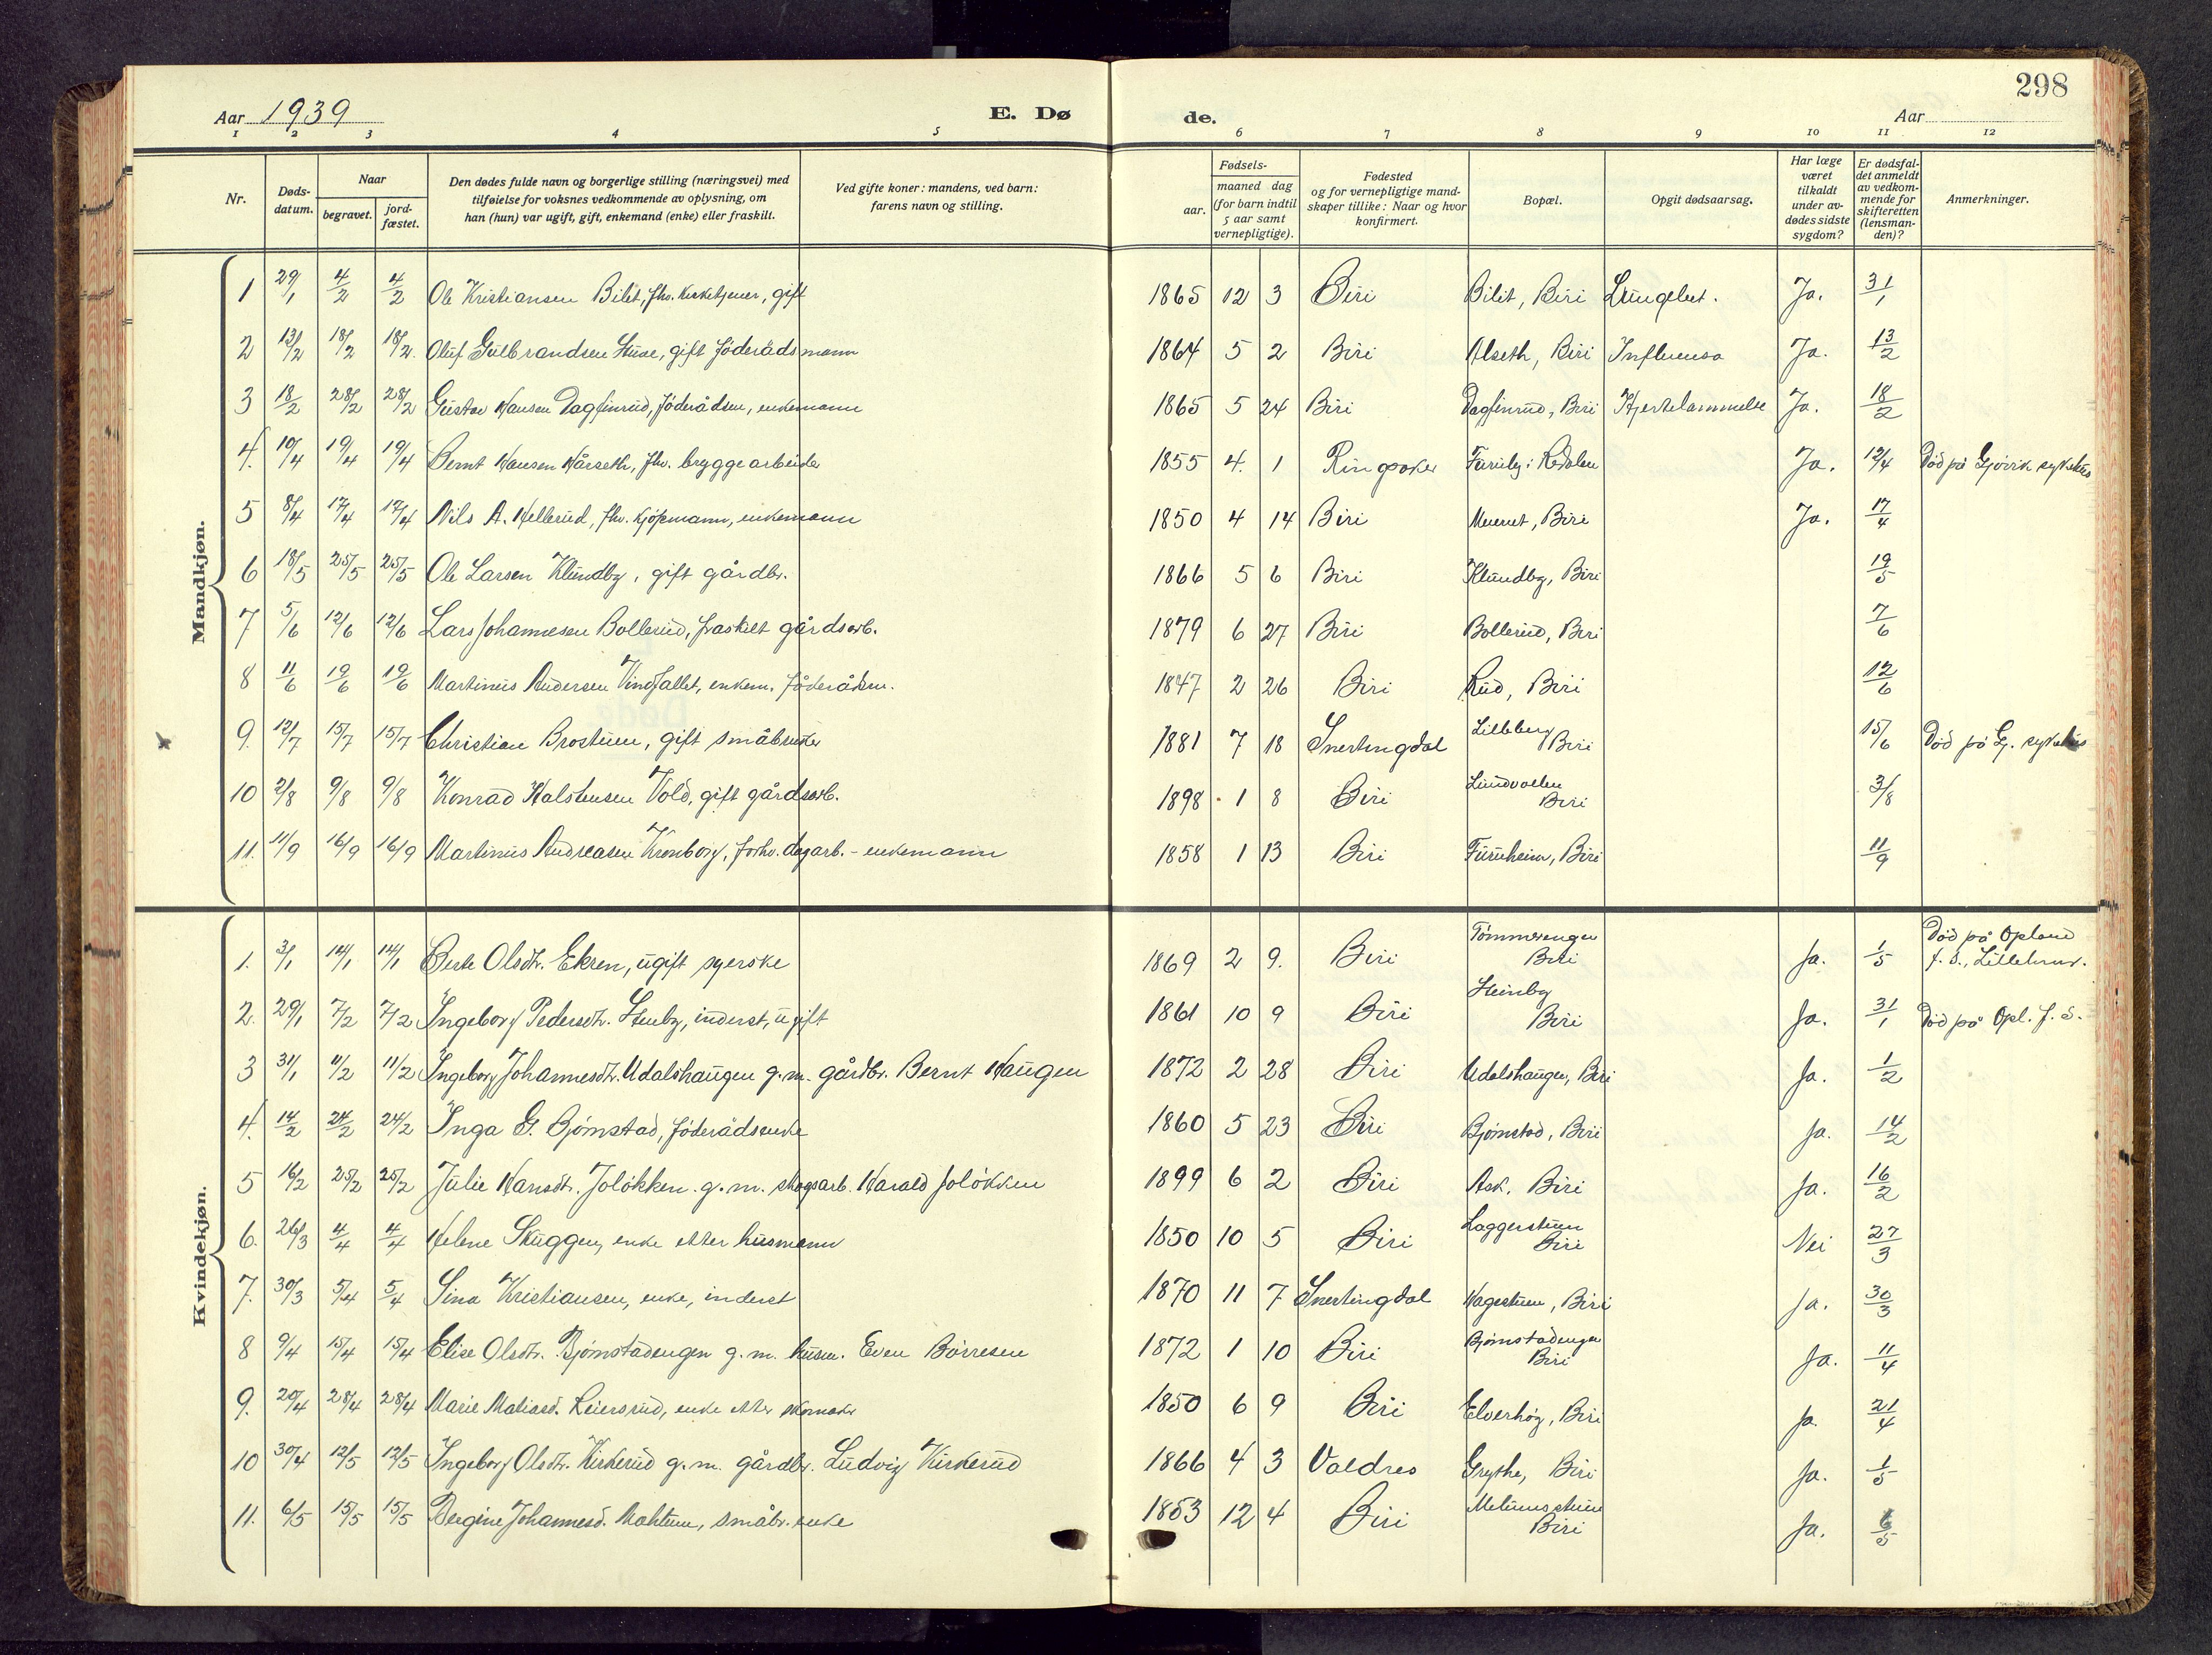 298
Aar 1939 E. Døde. Aar
1 2 3 4 5 6 7 8 9 10 11 12
Nr. Døds-datum. Naar begravet. jord-fæstet. Den dødes fulde navn og borgerlige stilling (næringsvei) med tilføielse for voksnes vedkommende av oplysning, om han (hun) var ugift, gift, enkemand (enke) eller fraskilt. Ved gifte koner: mandens, ved barn: farens navn og stilling. Fødsels- aar. maaned dag (for barn indtil 5 aar samt vernepligtige). Fødested og for vernepligtige mandskaper tillike: Naar og hvor konfirmert. Bopæl. Opgit dødsaarsag. Har læge været tilkaldt under avdødes sidste sygdom? Er dødsfaldet anmeldt av vedkommende for skifteretten (lensmanden)? Anmerkninger.
Mandkjøn.
1 29/1 4/2 4/2 Ole Kristiansen Bilit, fhv. kirketjener, gift 1865 12 3 Biri Bilit, Biri Lungebet. Ja. 31/1
2 13/2 18/2 18/2 Oluf Gulbrandsen Stuve, gift föderådsmann 1864 5 2 Biri Alseth, Biri Influensa Ja. 13/2
3 18/2 28/2 28/2 Gustav Hansen Dagfinrud, föderådsm, enkemann 1865 5 24 Biri Dagfinrud, Biri Hjertelammelse Ja. 18/2
4. 10/4 19/4 19/4 Bernt Hansen Hårseth, fhv. bryggearbeider 1855 4. 1 Ringsaker Furuly i Redalen Ja. 12/4 Död på Gjövik sykehus
5 8/4 17/4 17/4 Nils A. Hellerud, fhv. kjöpmann, enkemann 1850 4 14 Biri Muerut, Biri Ja. 17/4
6 18/5 25/5 25/5 Ole Larsen Klundby, gift gårdbr. 1866 5 6 Biri Klundby, Biri 19/5
7 5/6 12/6 12/6 Lars Johannesen Bollerud, fraskilt gårdsarb. 1879 6 27 Biri Bollerud, Biri 7/6
8 11/6 19/6 19/6 Martinus Andersen Vindfallet, enkem. föderådsm. 1847 2 26 Biri Rud, Biri 12/6
9. 12/7 15/7 15/7 Christian Brostuen, gift småbruker 1881 7 18 Snertingdal Lilleberg Biri 15/6 Död på Gj. sykehus
10 2/8 9/8 9/8 Konrad Halstensen Vold, gift gårdsarb. 1898 1 8 Biri Lundvollen Biri 3/8
11. 11/9 16/9 16/9 Martinus Andreasen Kronborg, forhv. dagarb. - enkemann 1858 1 13 Biri Furuheim, Biri 11/9
Kvindekjøn.
1. 3/1 14/1 14/1 Berte Olsdtr. Ekren, ugift syerske 1869 2 9. Biri Tömmerengen Biri Ja. 1/5 Död på Opland f. s., Lillehmr.
2. 29/1 7/2 7/2 Ingeborg Pedersdtr. Stenby, inderst, ugift 1861 10 9 Biri Steinby Biri Ja. 31/1 Död på Opl. f. s.
3 31/1 11/2 11/2 Ingeborg Johannesdtr. Udalshaugen g.m. gårdbr. Bernt Haugen 1872 2 28 Biri Udalshaugen, Biri Ja. 1/2
4. 14/2 24/2 24/2 Inga G. Bjørnstad, föderådsenke 1860 5 23 Biri Bjørnstad, Biri Ja. 14/2
5 16/2 25/2 25/2 Julie Hansdtr. Jolökken g.m. skogsarb. Harald Jolökken 1899 6 2 Biri Ask. Biri Ja. 16/2
6. 26/3 4/4 4/4 Helene Skuggen, enke etter husmann 1850 10 5 Biri Laggerstuen Biri Nei 27/3
7. 30/3 5/4 5/4 Sina Kristiansen, enke, inderst 1870 11 7 Snertingdal Hagestuen, Biri Ja. 30/3
8 9/4 15/4 15/4 Elise Olsdtr. Bjørnstadengen g.m. husm. Even Börresen 1872 1 10 Biri Bjørnstadengen Biri Ja. 11/4
9. 20/4 28/4 28/4 Marie Matiasd. Reiersrud, enke etter skomaker 1850 6 9 Biri Elverhøy, Biri Ja. 21/4
10 30/4 12/5 12/5 Ingeborg Olsdtr. Kirkerud g.m. gårdbr. Ludvig Kirkerud 1866 4 3 Valdres Grythe, Biri Ja. 1/5
11. 6/5 15/5 15/5 Bergine Johannesd. småbr. enke 12 4 Biri Melumsstuen Biri Ja. 6/5